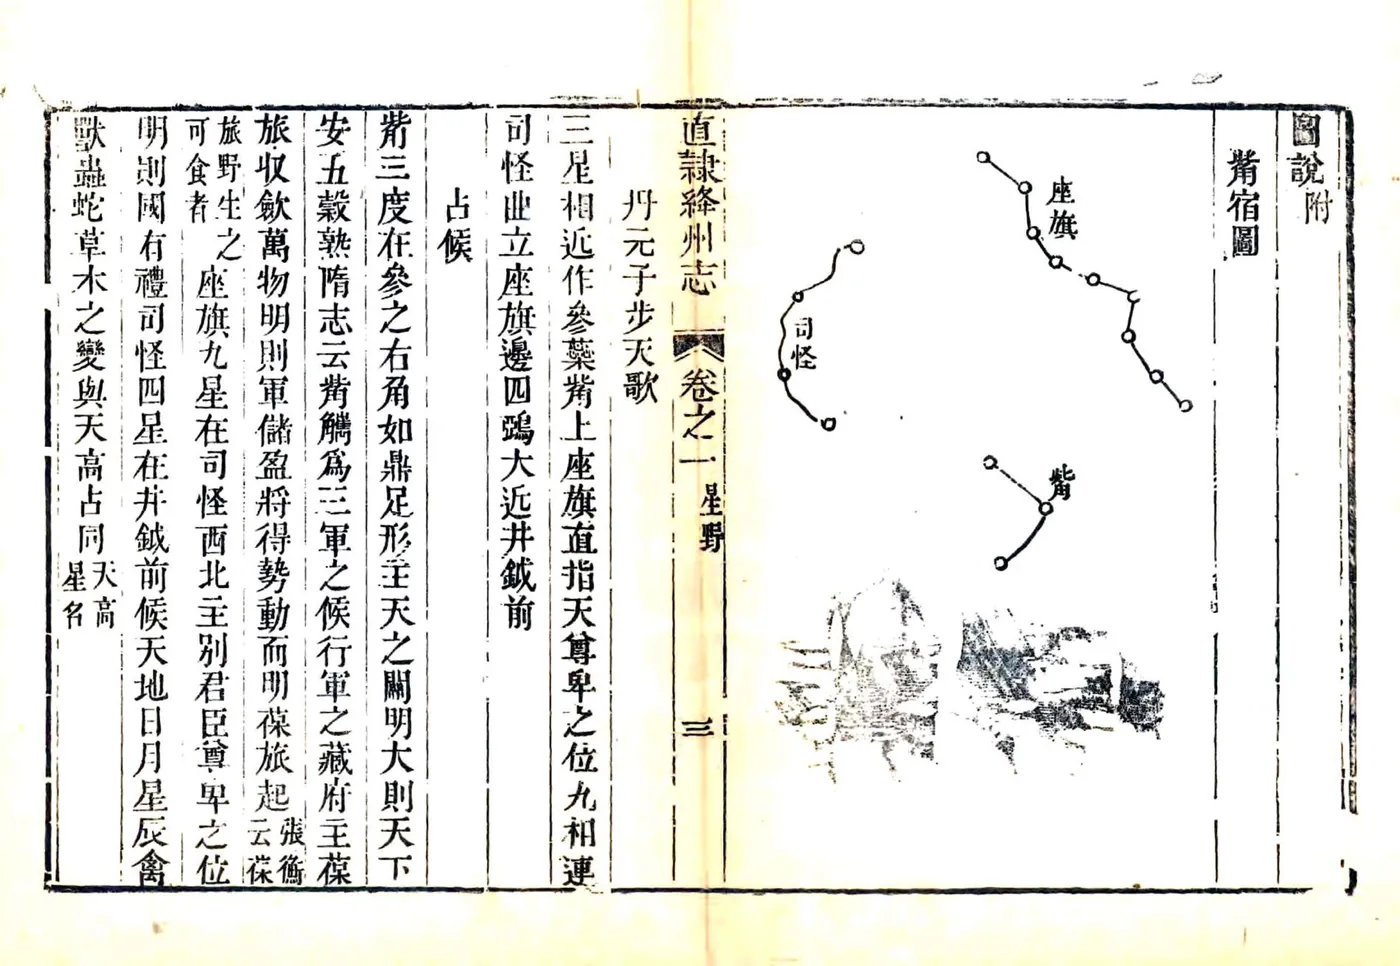 圖說附
觜宿圖
座旗
司怪
觜
直隸絳州志
卷之一
星野
三
丹元子步天歌
三星相近作參蘂觜上座旗直指天尊卑之位九相連
司怪曲立座旗邊四鴉大近井鉞前
占候
觜三度在參之右角如鼎足形主天之關明大則天下
安五穀熟隋志云觜觿爲三軍之候行軍之藏府主葆
旅收斂萬物明則軍儲盈將得勢動而明葆旅起張衡云葆
旅野生之可食者座旗九星在司怪西北主別君臣尊卑之位
明則國有禮司怪四星在井鉞前候天地日月星辰禽
獸蟲蛇草木之變與天高占同天高星名